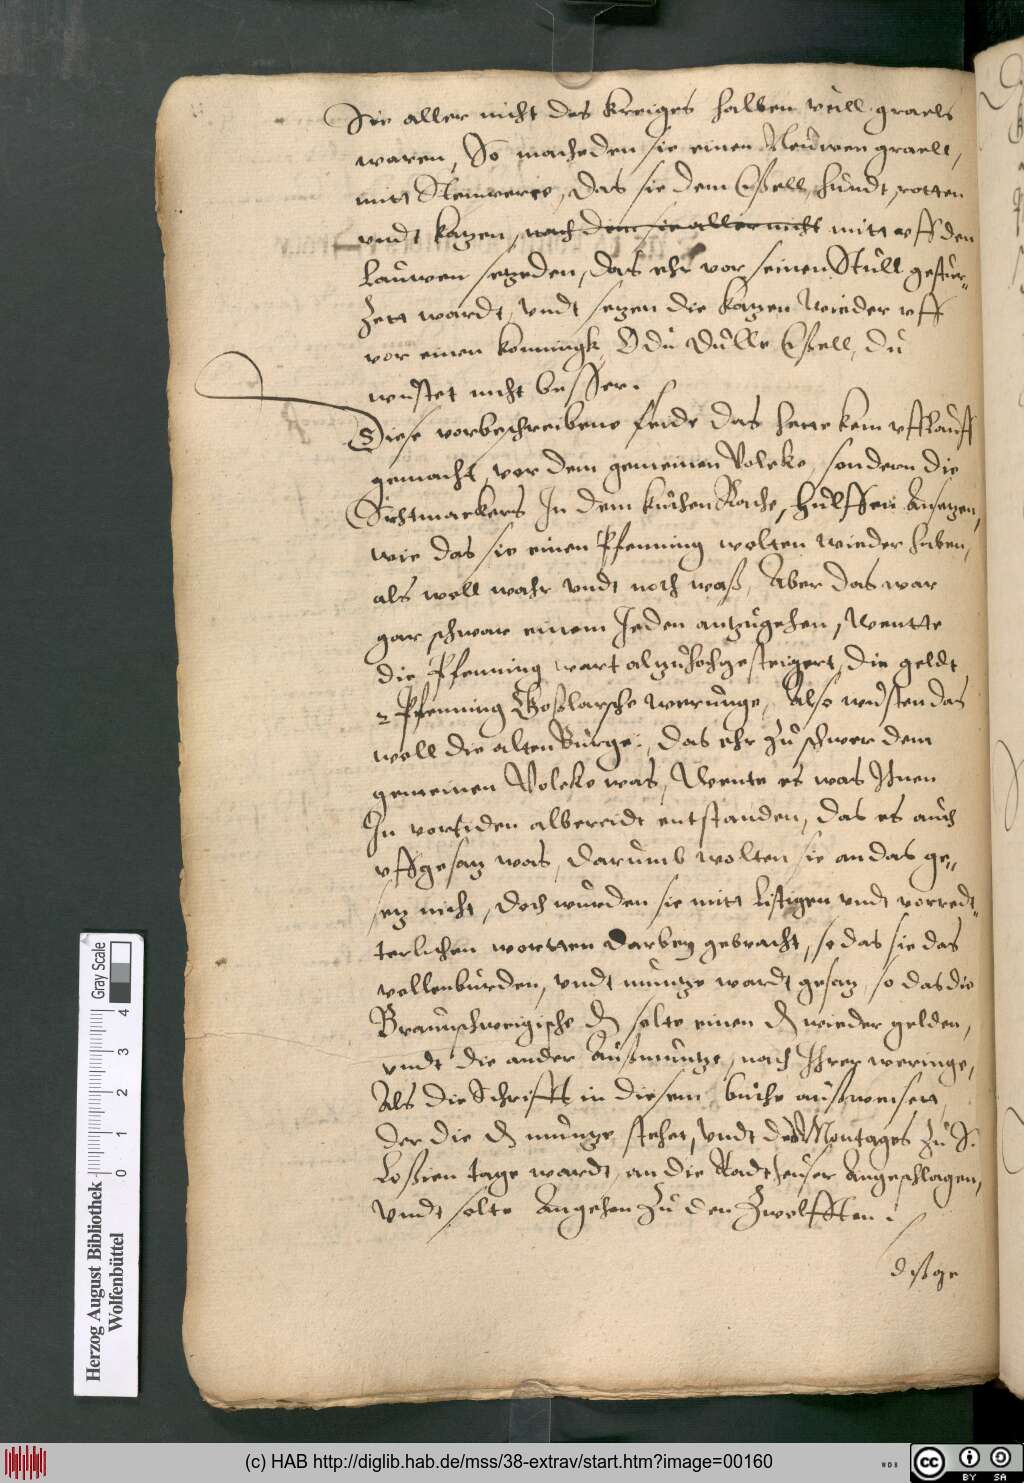 Sie aller nicht des kreiges halben vull graels
waren, So macheden sie einen Neuwen graell,
mitt Stenwerce, das sie dem Eßell, hundt, rotten
undt katzen, nach dem sie aller nicht mitt uff den
Lauwen setzeden, das ehr vor seinen Stull gestur-
zett wardt, undt setzen die katzen wieder uff
vor einen konningk, O du Dulle Eßell, du
wustet nicht besser.
Diese vorbeschreibene feide das hette kein ufflauff
gemacht, vor dem gemeinen Volcke, sondern die
Sechtmackers In dem kuchen Rache, hulffen Ansetzen,
wie das sie einen Pfenning wolten wieder haben,
als woll wahr undt noch waß, Aber das war
gar schwar einem Jeden antzugehen, wentte
die Pfenning wart altzuhochgesteigert, die geldt
2 Pfenning Goßlarsche weerunge, Also wusten das
woll die alten Burge., das ehr zu schwer dem
gemeinen Volcke was, Wente es was Ihnen
In vortiden albereidt entstanden, das es auch
uffgesatz was, darumb wolten sie an das ge-
setz nicht, doch wurden sie mitt listigen undt vorredt-
terlichen wortten darbey gebracht, so das sie das
vollenburden, undt muntze wardt gesatz, so das die
Braunschweigische d solte einen d wieder gelden,
undt die ander Außmuntze, nach Ihrer weringe,
Als die Schrifft in diesem buche außweisett,
der die d muntze stehet, undt des Montages zu S.
Loßien tage wardt, an die Radtheuser Angeschlagen,
Undt solte Angehen zu den Zwolfften.
dißge
Herzog August Bibliothek
Wolfenbüttel
0 1 2 3 4
Gray Scale
(c) HAB http://diglib.hab.de/mss/38-extrav/start.htm?image=00160
WDB
cc BY SA